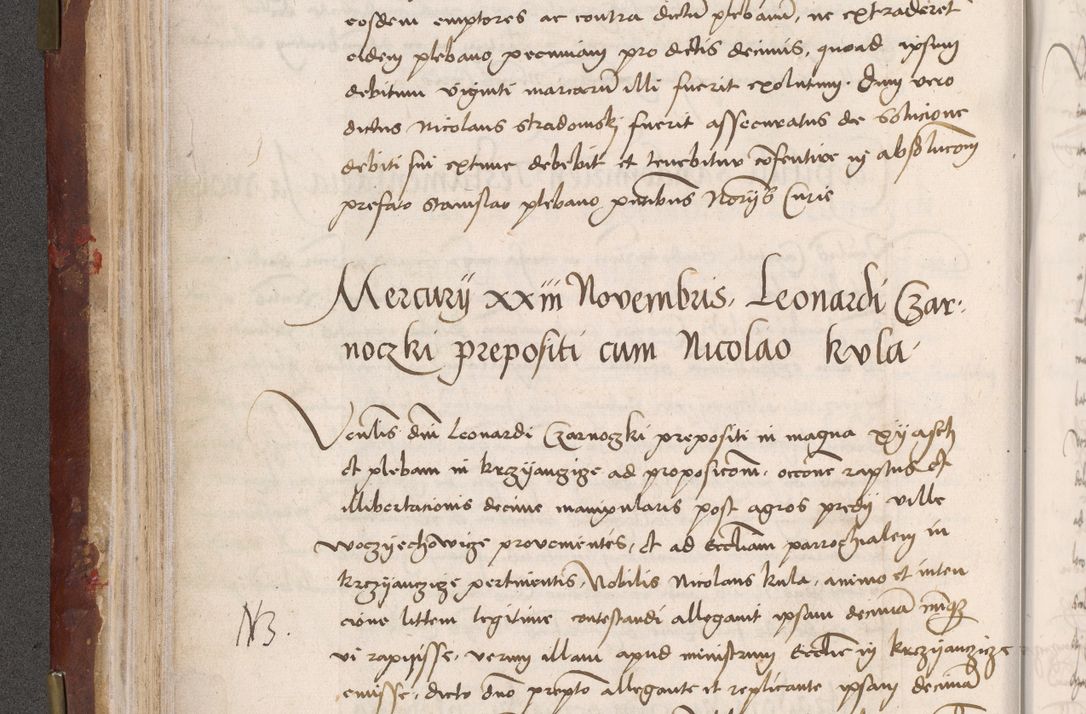 eosdem emptores ac contra dictum plebanum, ne extraderet
eidem plebano pecuniam pro dictis decimis, quoad ipsum
debitum viginti marcarum illi fuerit exolutum. Dum vero
dictus Nicolaus Stradomskj fuerit assecuratus de solucione
debiti sui extunc debebit et tenebitur consentire in absolucionem
prefato Stanislao plebano, presentibus Notarijs Curie
Mercurij xxiii Novembris, Leonardi Czar-
noczki prepositi cum Nicolao kula
Venerabilis domini Leonardi Czarnoczki prepositi in magna Xyasch
et plebani in krzyanczicze ad proposicionem, occasione raptus et
illibertacionis decime manipularis post agros predij ville
woczyechowicze provenientes, et ad Ecclesiam parrochialem in
krzyanczicze pertinentis, Nobilis Nicolaus kula, animo et inten
cione littem legitime contestandi allegavit ipsam decimam
vi rapuisse, verum illam apud ministrum Ecclesie in krzyanczicze
emisse, dicto domino preposito allegante et replicante ipsam decimam
NB.